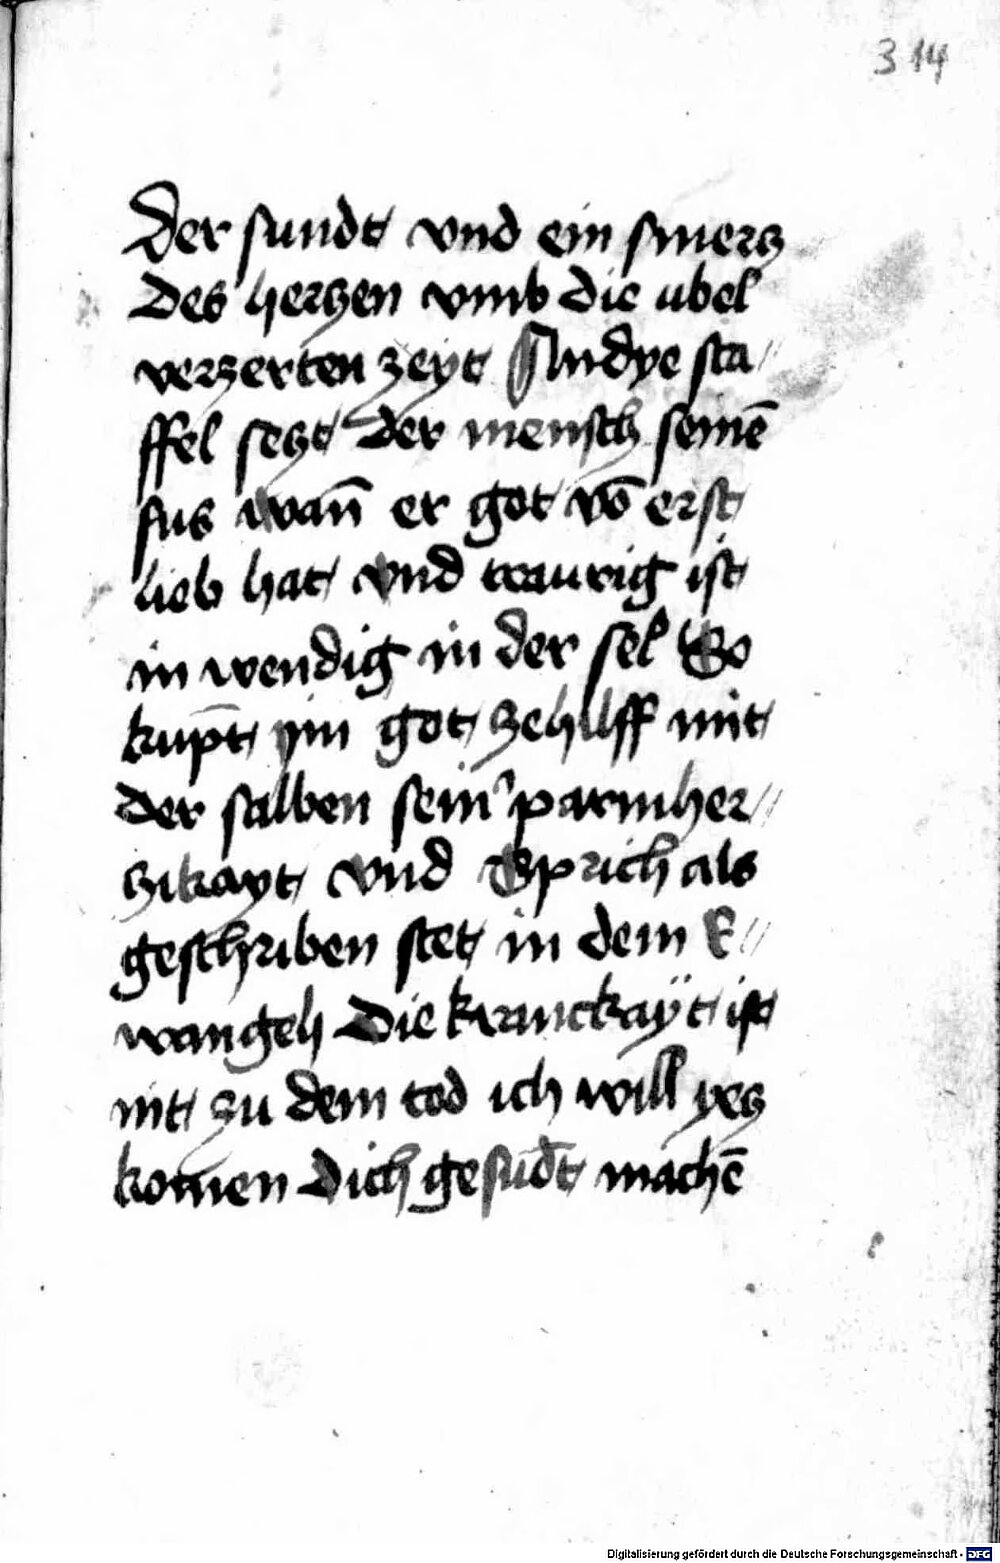 314
Der sundt vnd ein smercz
Des herczen vmb die ubel
verzerten zeyt An dye sta//
ffel seczt der mensch seinē
fus wan̄ er got vō erst
lieb hat vnd traurig ist
in wendig in der sel So
kupt̄ ym got zehilff mit
der salben sein' parmher//
zikayt vnd Sprich als
geschriben stet in dem E//
wangeli Die kranckaÿt ist
nit zu dem tod ich will yecz
komen dich gesūdt machē
Digitalisierung gefördert durch die Deutsche Forschungsgemeinschaft - DFG